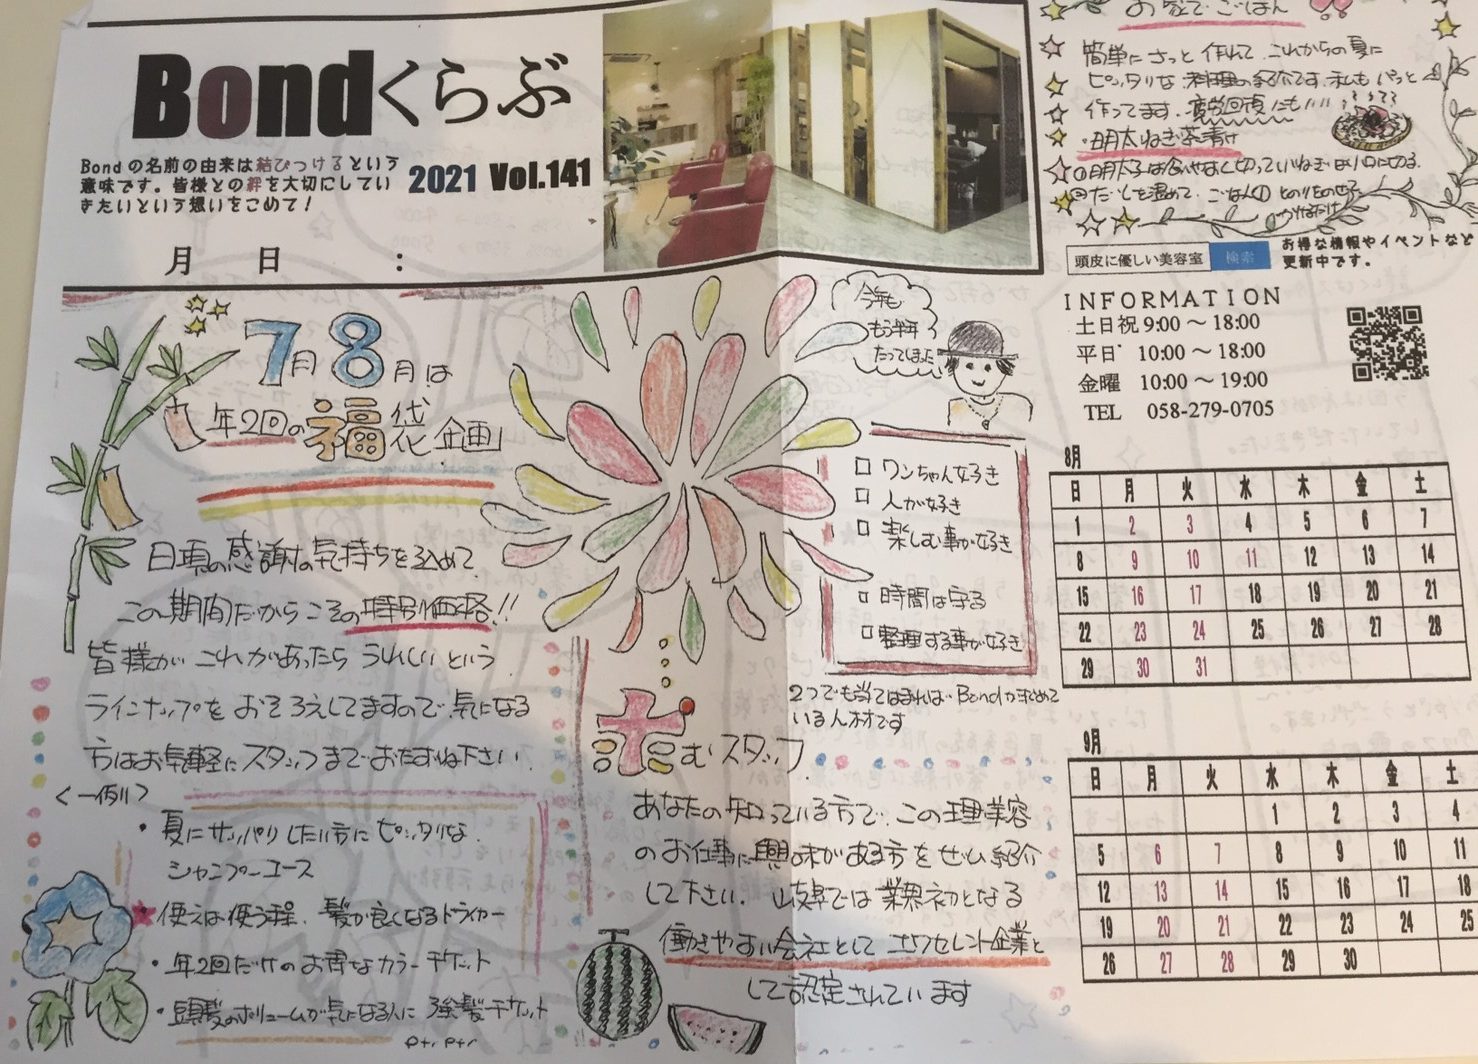 Bondくらぶ
Bondの名前の由来は結びつけるという
意味です。皆様との絆を大切にしてい
きたいという想いをこめて!
2021 Vol.141
月 日 :
7月8月は
年2回の福袋企画
日頃の感謝の気持ちを込めて
この期間だからこその特別価格!!
皆様が これがあったら うれしいという
ラインナップを おそろえしてますので 気になる
方はお気軽に スタッフまで おたずね下さい.
<一例>
・夏に サッパリ したい方に ピッタリな
シャンプーコース
使えば使う程、髪が良くなるドライヤー
・年2回だけの お得なカラーチケット
・頭髪のボリュームが気になる人に 強髪チケット
etc etc
今年も
もう半年
たってしまった
□ ワンちゃん好き
□ 人が好き
□ 楽しむ事が好き
□ 時間は守る
□ 整理する事が好き
2つでも当てはまれば Bondが求めて
いる人材です
求むスタッフ
あなたの知っている方で、この理美容
のお仕事に興味がある方をぜひ紹介
して下さい. 岐阜では業界初となる
働きやすい会社として エクセレント企業と
して認定されています
お家で ごはん
簡単に さっと 作れて これからの夏に
ピッタリな 料理の紹介です. 私も パッと
作ってます. 疲労回復にも!!!!
・明太ねぎ茶漬け
①明太子は食べやすく切って ねぎは小口に切る
②だしを温めて、ごはん のりをのせて
かけるだけ
頭皮に優しい美容室 検索
お得な情報やイベントなど
更新中です。
INFORMATION
土日祝 9:00 ~ 18:00
平日 10:00 ~ 18:00
金曜 10:00 ~ 19:00
TEL 058-279-0705
8月
日 月 火 水 木 金 土
1 2 3 4 5 6 7
8 9 10 11 12 13 14
15 16 17 18 19 20 21
22 23 24 25 26 27 28
29 30 31
9月
日 月 火 水 木 金 土
1 2 3 4
5 6 7 8 9 10 11
12 13 14 15 16 17 18
19 20 21 22 23 24 25
26 27 28 29 30